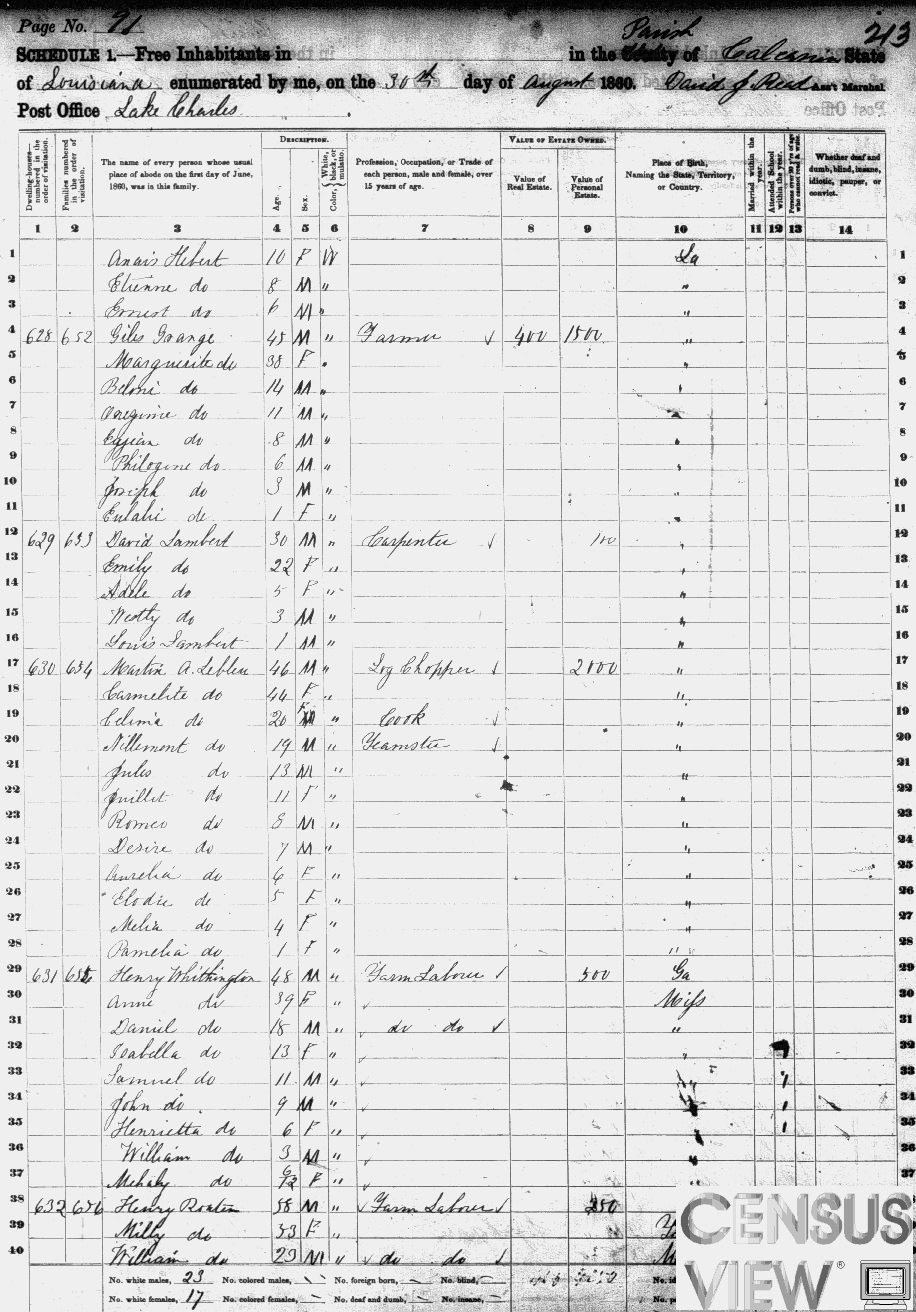 Page No. 91
213
SCHEDULE 1.—Free Inhabitants in in the Parish County of Calcasieu State
of Louisiana enumerated by me, on the 30th day of August 1860. David J. Reed Ass't Marshal
Post Office Lake Charles.
DESCRIPTION. VALUE OF ESTATE OWNED.
Dwelling-houses—numbered in the order of visitation.
Families numbered in the order of visitation.
The name of every person whose usual place of abode on the first day of June, 1860, was in this family.
Age.
Sex.
Color, White, black, or mulatto.
Profession, Occupation, or Trade of each person, male and female, over 15 years of age.
Value of Real Estate.
Value of Personal Estate.
Place of Birth, Naming the State, Territory, or Country.
Married within the year.
Attended School within the year.
Persons over 20 y'rs of age who cannot read & write.
Whether deaf and dumb, blind, insane, idiotic, pauper, or convict.
1 2 3 4 5 6 7 8 9 10 11 12 13 14
1 Anais Hebert 10 F W La 1
2 Etienne do 8 M " " 2
3 Ernest do 6 M " " 3
4 628 652 Giles Grange 45 M " Farmer 400 1500 " 4
5 Marguerite do 38 F " " 5
6 Beloni do 14 M " " 6
7 do 11 M " " 7
8 do 8 M " " 8
9 Philogene do 6 M " " 9
10 Joseph do 3 M " " 10
11 Eulalie do 1 F " " 11
12 629 653 David Lambert 30 M " Carpenter 100 " 12
13 Emily do 22 F " " 13
14 Adele do 5 F " " 14
15 Westly do 3 M " " 15
16 Louis Lambert 1 M " " 16
17 630 654 Martin A. Lebleu 46 M " Log Chopper 2000 " 17
18 Carmelite do 44 F " " 18
19 Celima do 20 F " Cook " 19
20 do 19 M " Teamster " 20
21 Jules do 13 M " " 21
22 Juillet do 11 F " " 22
23 Romeo do 8 M " " 23
24 Desire do 7 M " " 24
25 Aurelia do 6 F " " 25
26 Elodie do 5 F " " 26
27 Melia do 4 F " " 27
28 Pamelia do 1 F " " " 28
29 631 655 Henry Whithington 48 M " Farm Laborer 500 Ga 29
30 Anne do 39 F " Miss 30
31 Daniel do 18 M " do do " 31
32 Isabella do 13 F " " 1 32
33 Samuel do 11 M " " 1 33
34 John do 9 M " " 1 34
35 Henrietta do 6 F " " 1 35
36 William do 3 M " " 36
37 Mehaly do 6/12 F " " 37
38 632 656 Henry 58 M " Farm Laborer 250
39 Milly do 53 F "
40 William do 23 M " do do
No. white males, 23 No. colored males, No. foreign born, No. blind,
No. white females, 17 No. colored females, No. deaf and dumb, No. insane,
CENSUS
VIEW®